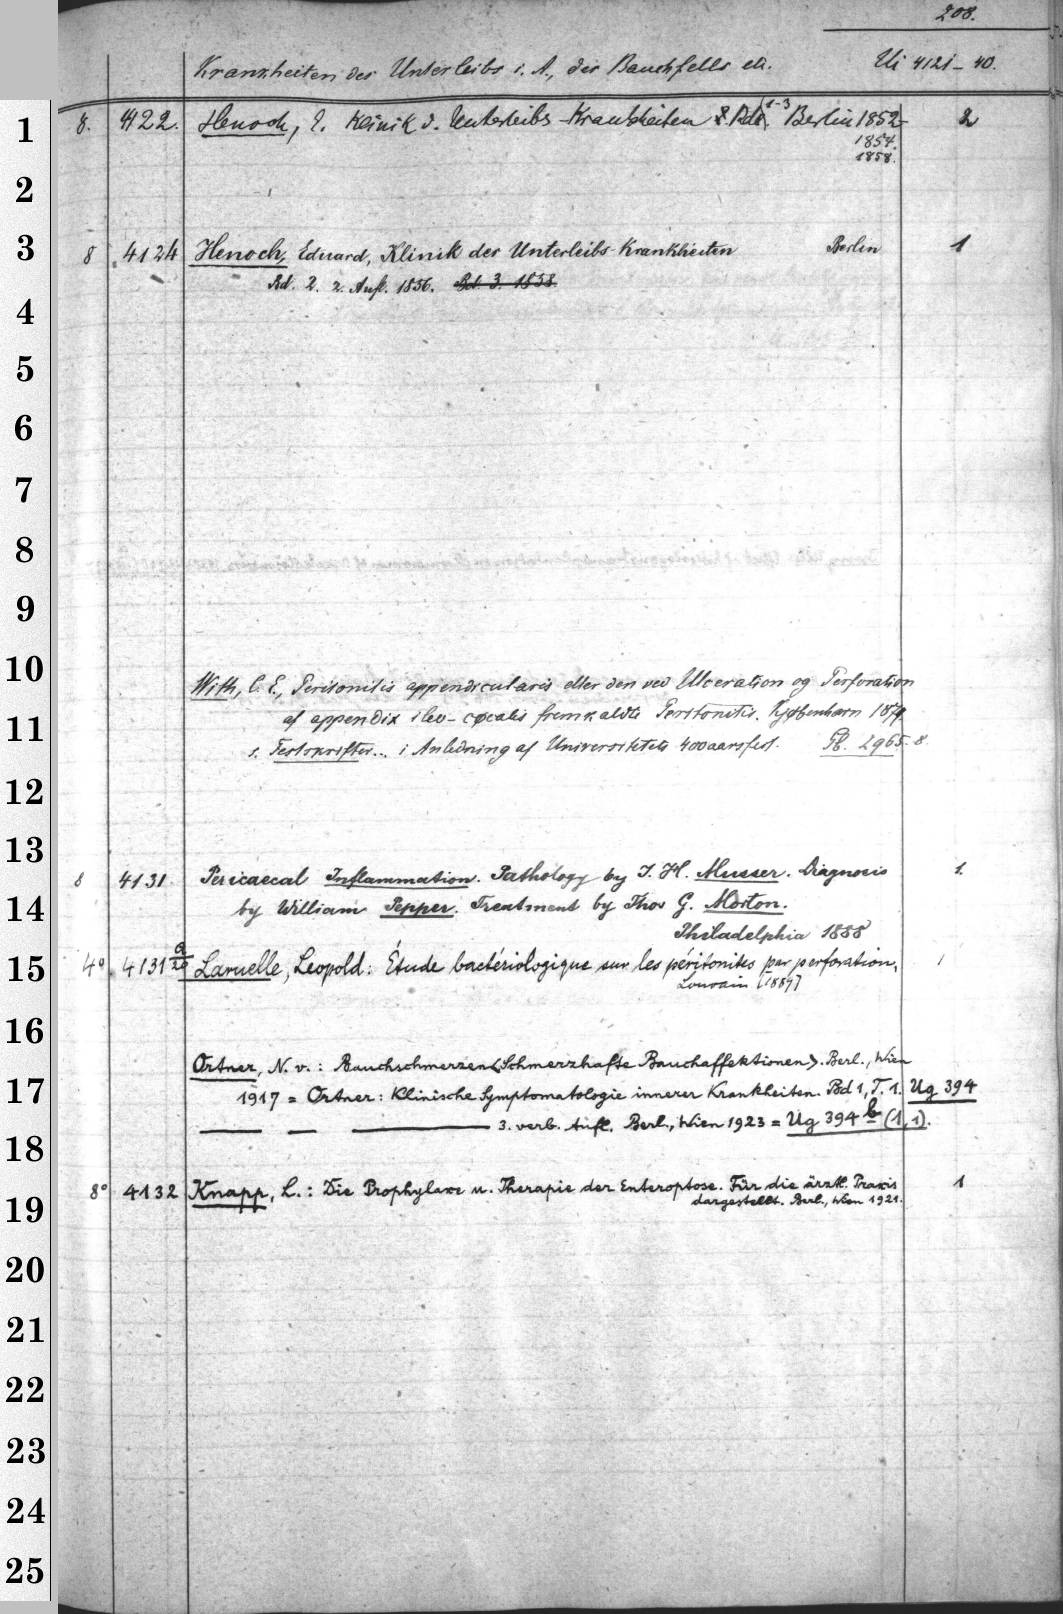 208.
Krankheiten des Unterleibs i. A., des Bauchfells etc. Ui 4121-40.
1 8. 4122. Henoch, E. Klinik d. Unterleibs-Krankheiten Bd. 1-3 Berlin 1852- 2
1854.
1858.
2
3 8 4124 Henoch, Eduard, Klinik der Unterleibs-Krankheiten Berlin 1
Bd. 2. 2. Aufl. 1856. Bd. 3. 1858.
4
5
6
7
8
9
10 With, C. E., Peritonitis appendicularis eller den ved Ulceration og Perforation
11 af appendix ileo-cøcalis fremkaldte Peritonitis. Kjøbenhavn 1879.
s. Festskrifter... i Anledning af Universitetets 400aarsfest. 2965. 8.
12
13
8 4131. Pericaecal Inflammation. Pathology by J. H. Musser. Diagnosis 1.
14 by William Pepper. Treatment by Thos G. Morton.
Philadelphia 1888
15 4° 4131 a/20 Laruelle, Leopold: Étude bactériologique sur les péritonites par perforation, 1
Louvain [1889]
16
Ortner, N. v.: Bauchschmerzen <Schmerzhafte Bauchaffektionen>. Berl., Wien
17 1917 = Ortner: Klinische Symptomatologie innerer Krankheiten. Bd 1, T. 1. Ug 394
— — — 3. verb. Aufl. Berl., Wien 1923 = Ug 394 b (1,1).
18
8° 4132 Knapp, L.: Die Prophylaxe u. Therapie der Enteroptose. Für die ärztl. Praxis 1
19 dargestellt. Berl., Wien 1921.
20
21
22
23
24
25